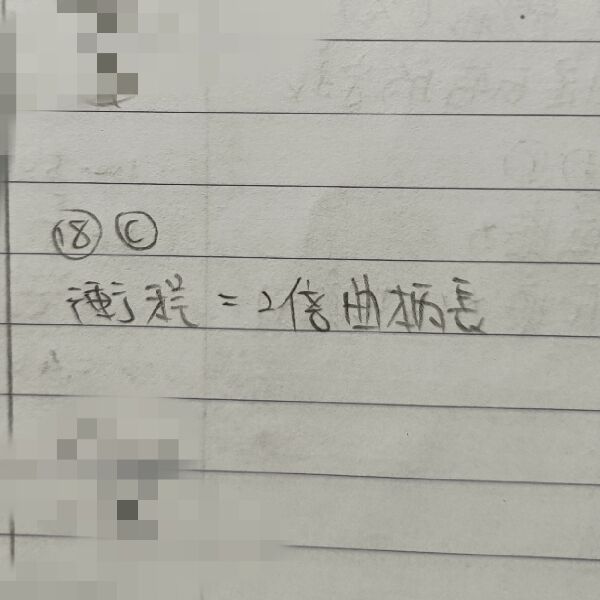 ⑱ Ⓒ
衝程 = 2倍曲柄長